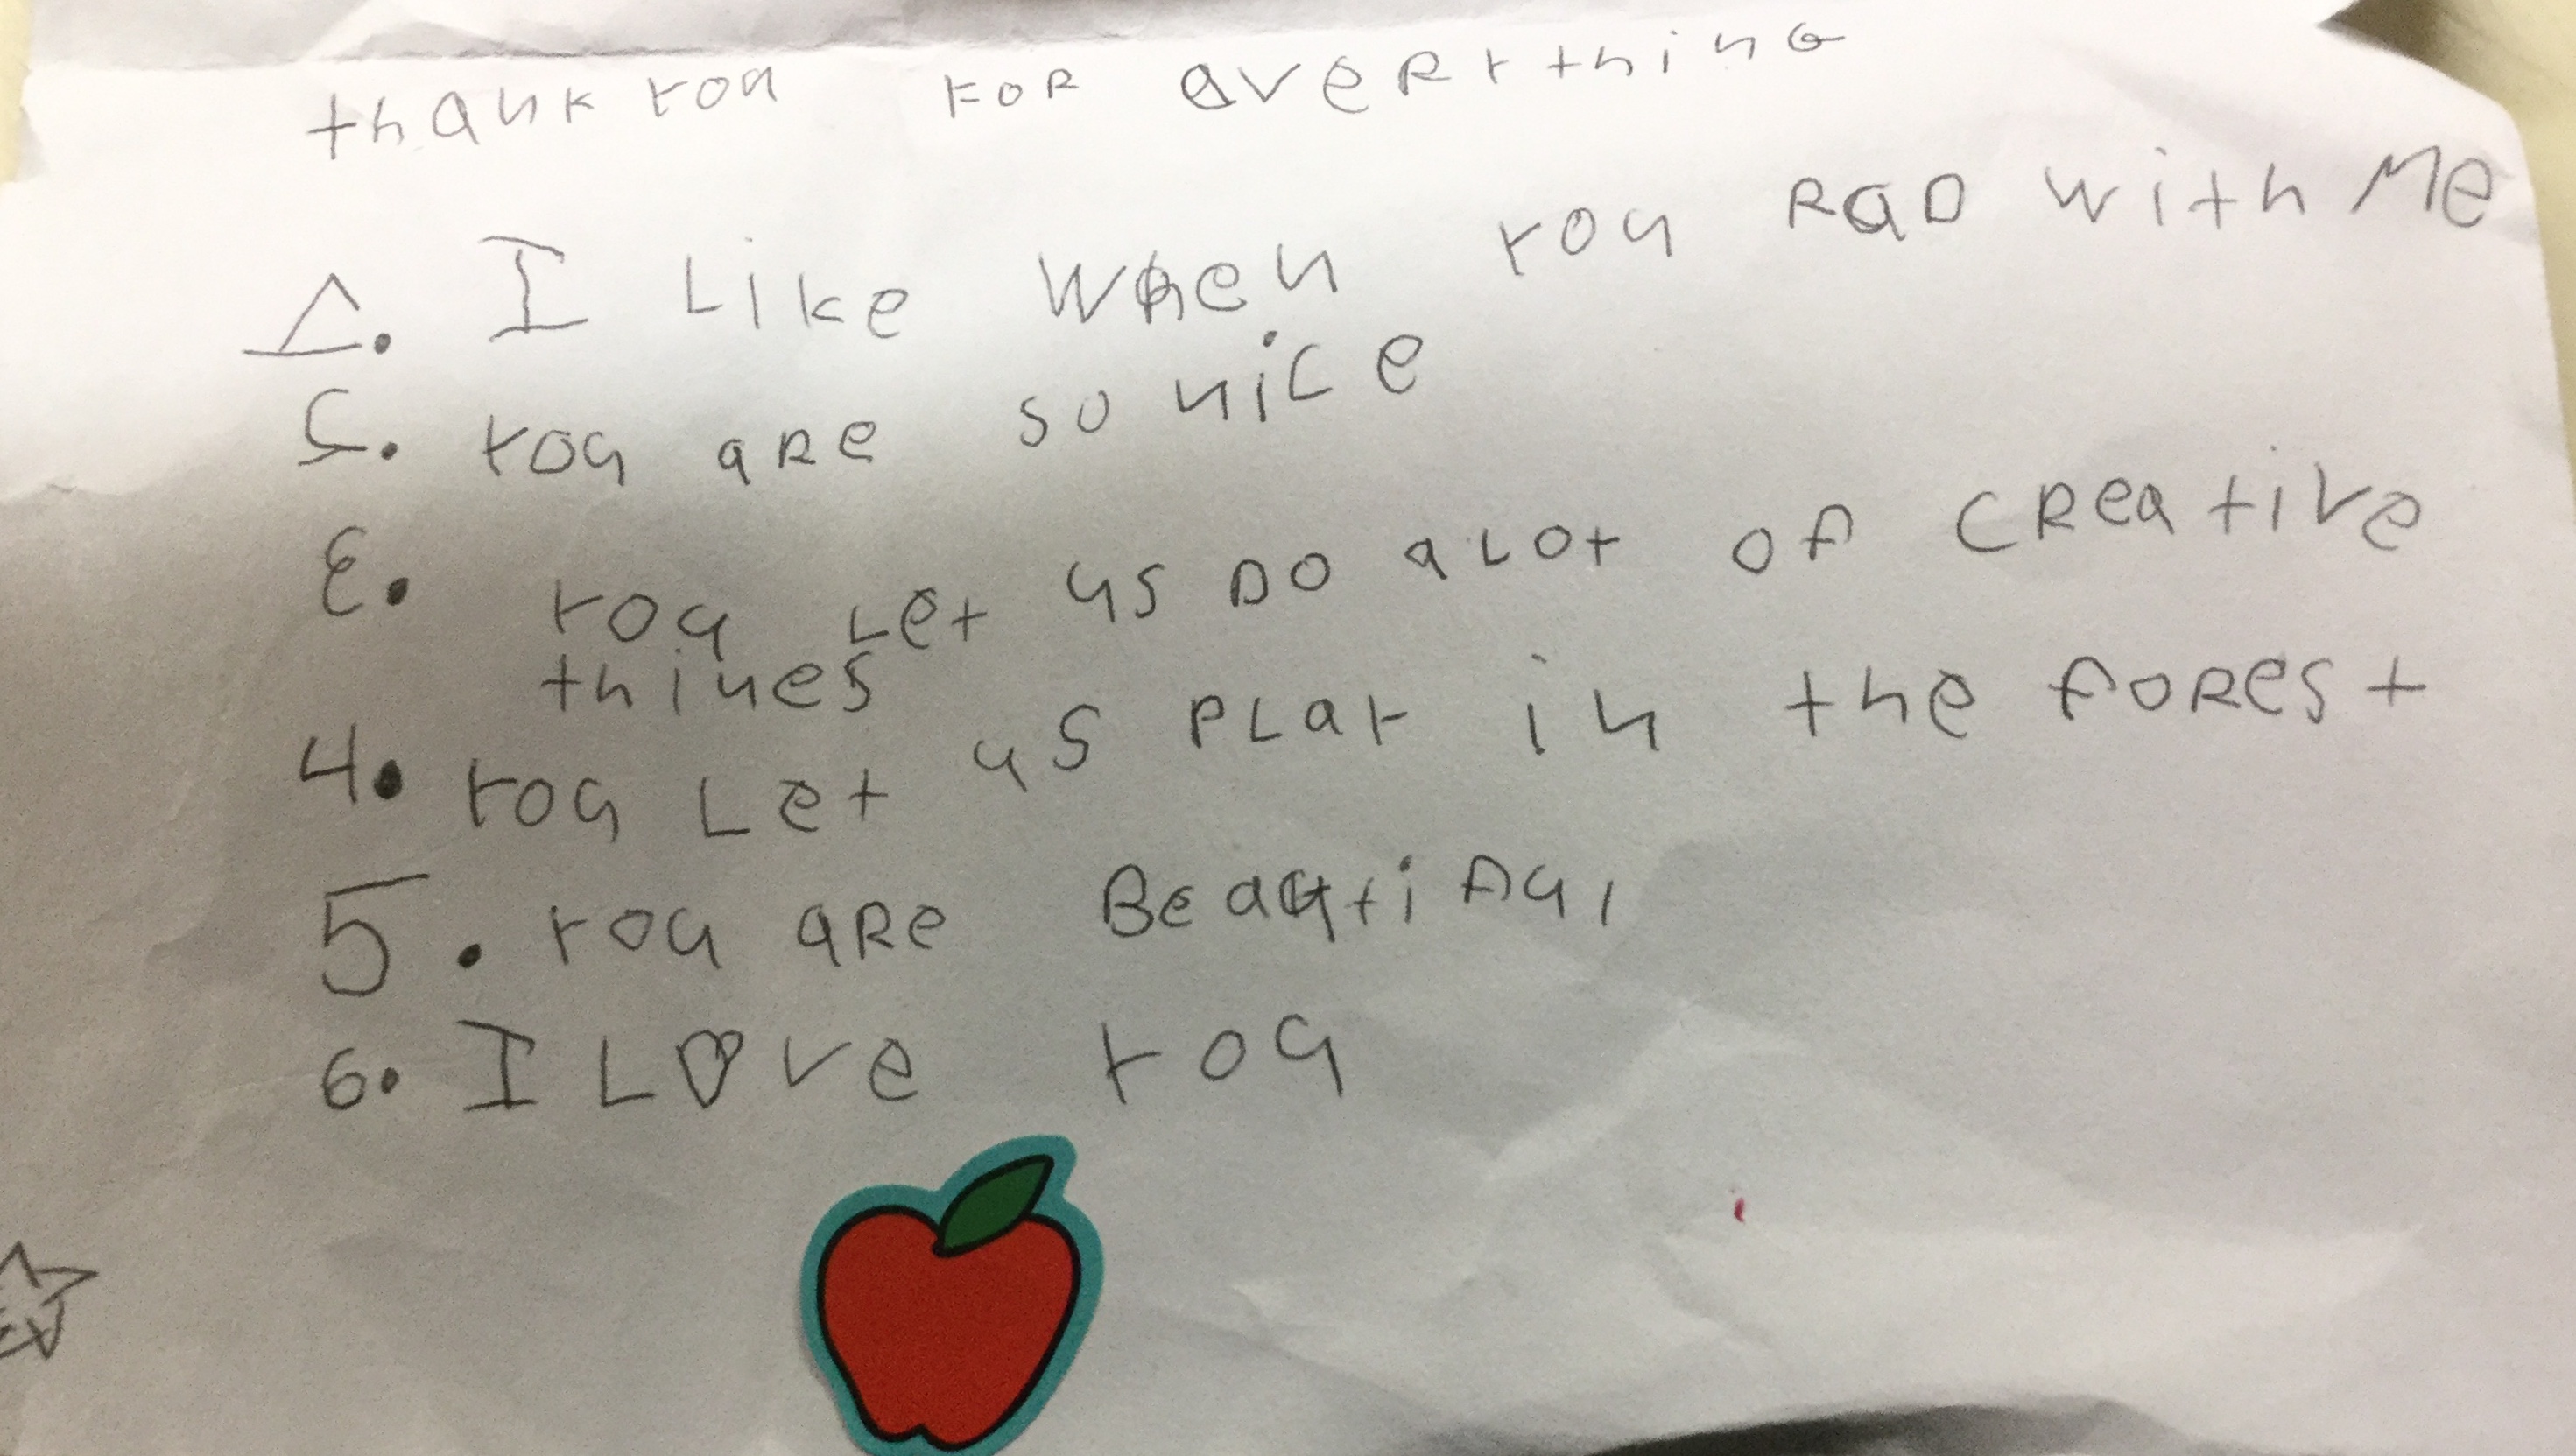 thank you FOR averything
1. I Like when you RaD with Me
2. you aRe so nice
3. you Let us DO a Lot of CReative
thines
4. you Let us PLay in the foRest
5. you aRe Beautiful
6. I LOve you